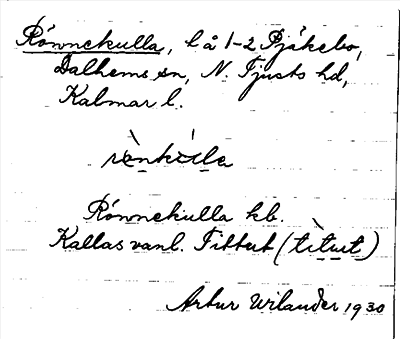 Rönnekulla, l å 1-2 Bjäkebo,
Dalhems sn, N. Tjusts hd,
Kalmar l.
rènkúla
Rönnekulla kb.
Kallas vanl. Tittut (tìtut)
Artur Wilander 1930